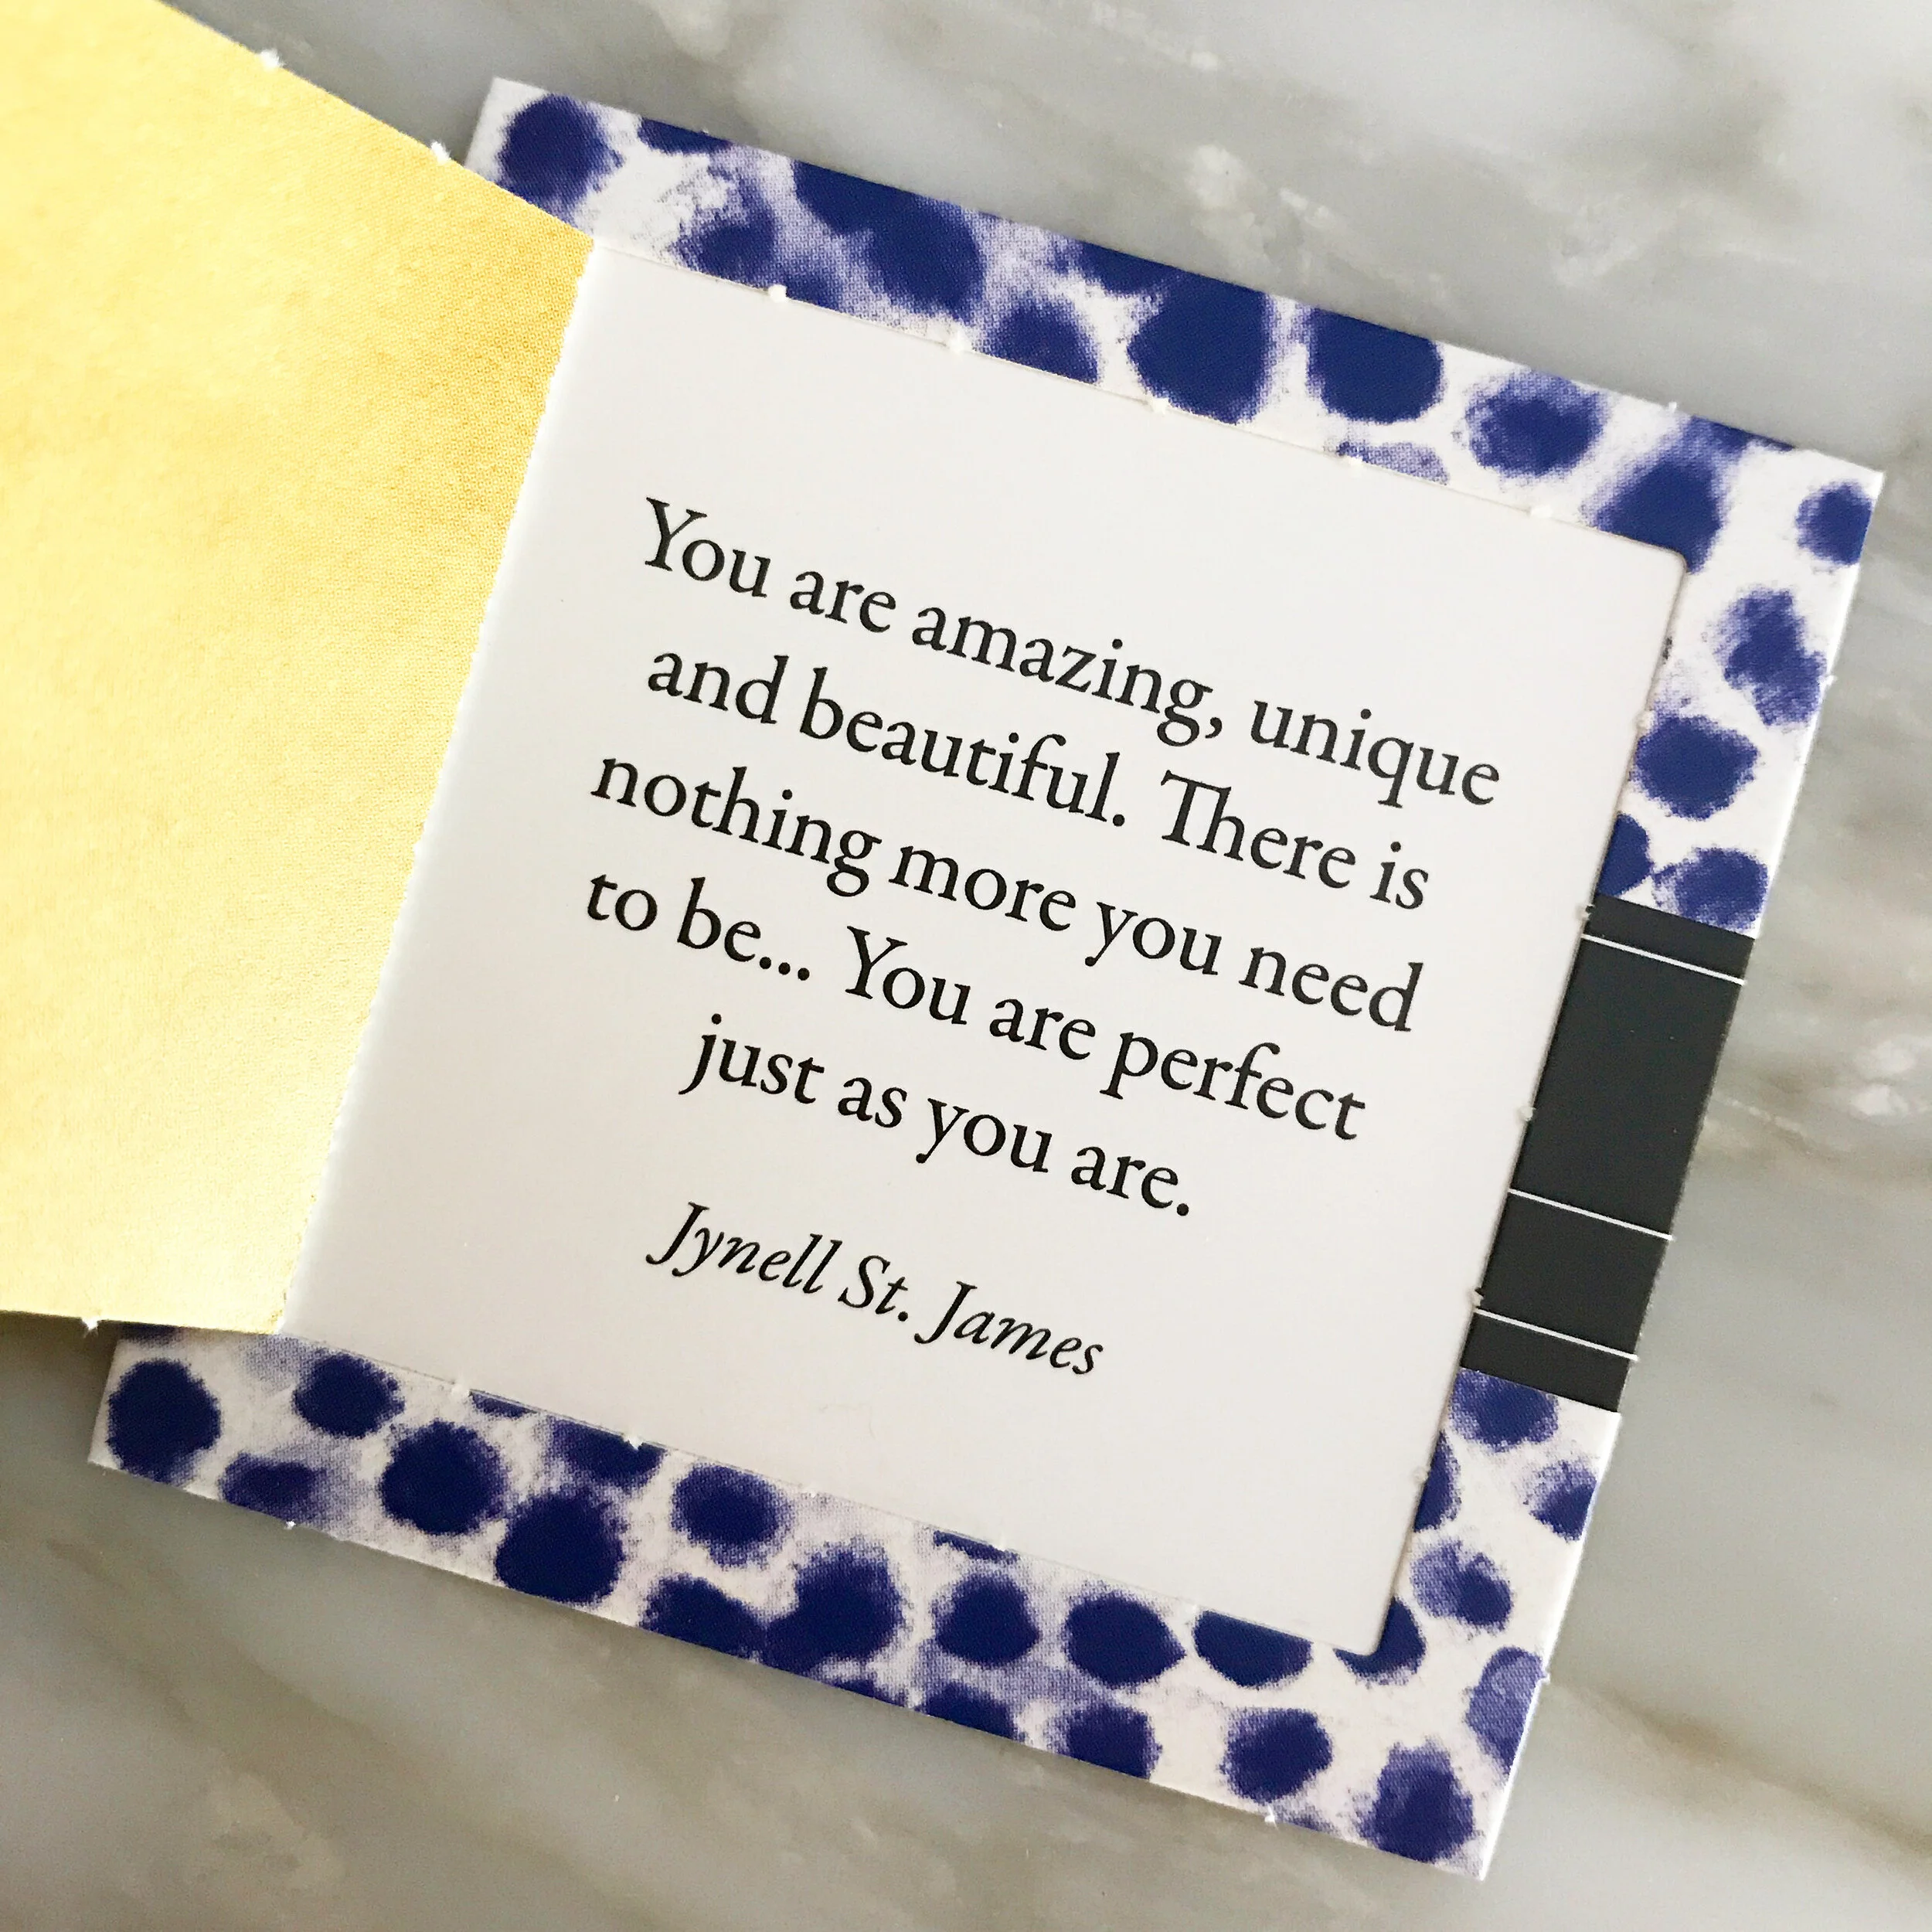 You are amazing, unique
and beautiful. There is
nothing more you need
to be... You are perfect
just as you are.
Jynell St. James